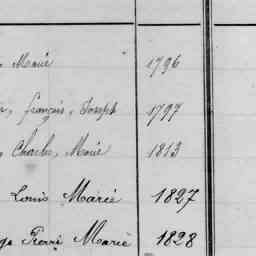 Marie 1796
françois, Joseph 1797
Charles, Marie 1813
Louis Marie 1827
Pierre Marie 1828